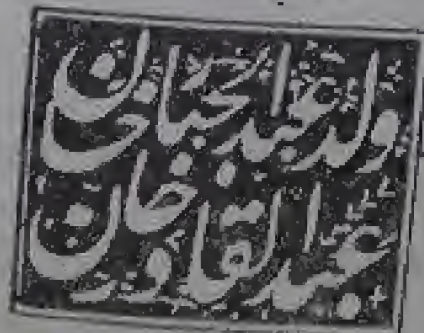 ولد عبدالجبار خان
عبدالقادر خان